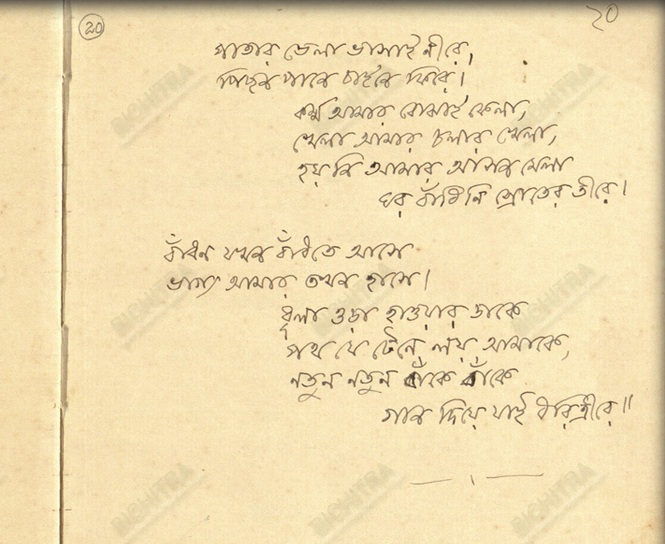 ২০
20
পাতার ভেলা ভাসাই নীরে,
পিছন পানে চাইনে ফিরে।
কর্ম আমার বোঝাই ফেলা,
খেলা আমার চলার খেলা,
হয়নি আমার আসন মেলা
ঘর বাঁধিনি স্রোতের তীরে।
বাঁধন যখন বাঁধতে আসে
ভাগ্য আমার তখন হাসে।
ধূলা ওড়া হাওয়ার ডাকে
পথ যে টেনে লয় আমাকে,
নতুন নতুন বাঁকে বাঁকে
গান দিয়ে যাই ধরিত্রীরে॥
BICHITRA